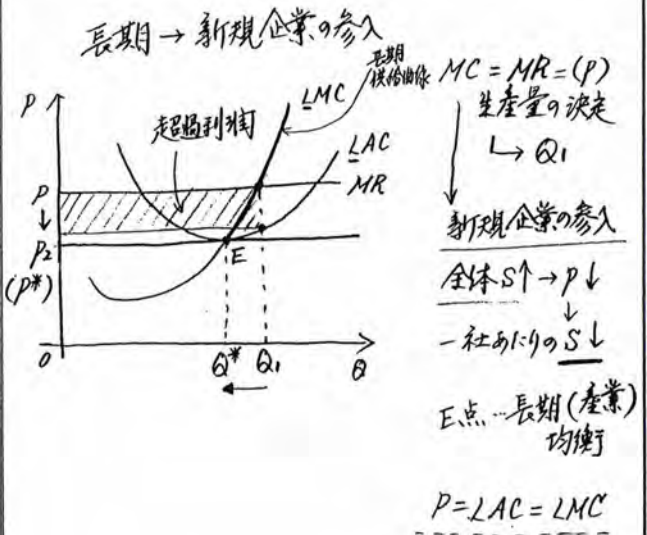 長期→新規企業の参入
長期
供給曲線
LMC
P
超過利潤
LAC
P
MR
↓
P2
(P*)
E
O
Q*
Q1
Q
←
MC=MR=(P)
生産量の決定
↳Q1
新規企業の参入
全体S↑→P↓
↓
一社あたりのS↓
E点…長期(産業)
均衡
P=LAC=LMC